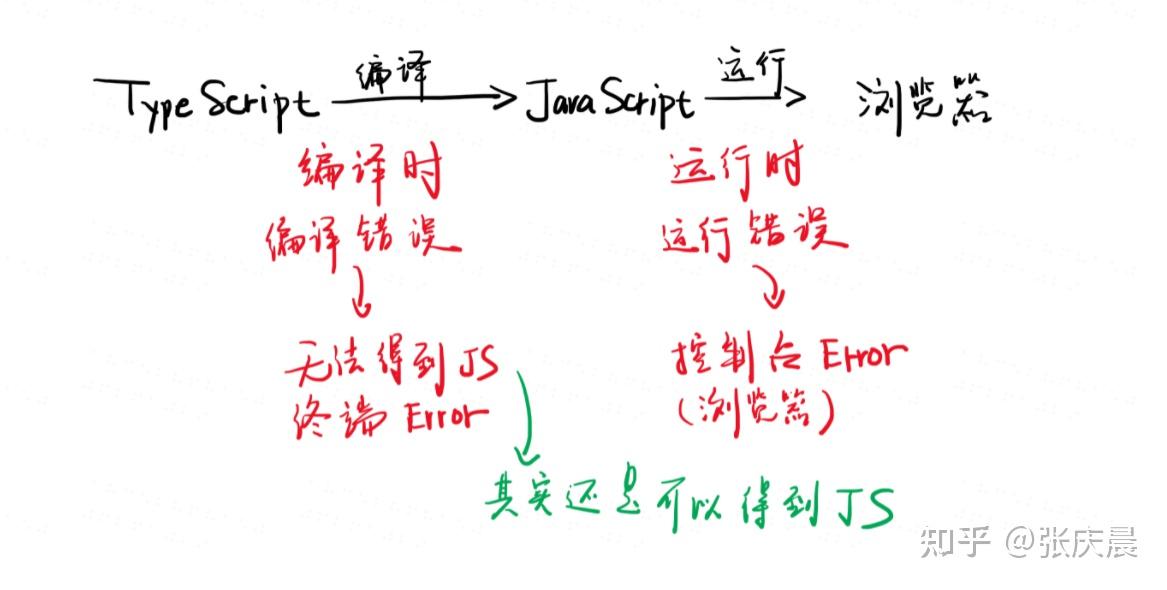 TypeScript 编译 JavaScript 运行 浏览器
编译时
编译错误
无法得到JS
终端Error
运行时
运行错误
控制台Error
(浏览器)
其实还是可以得到JS
知乎 @张庆晨